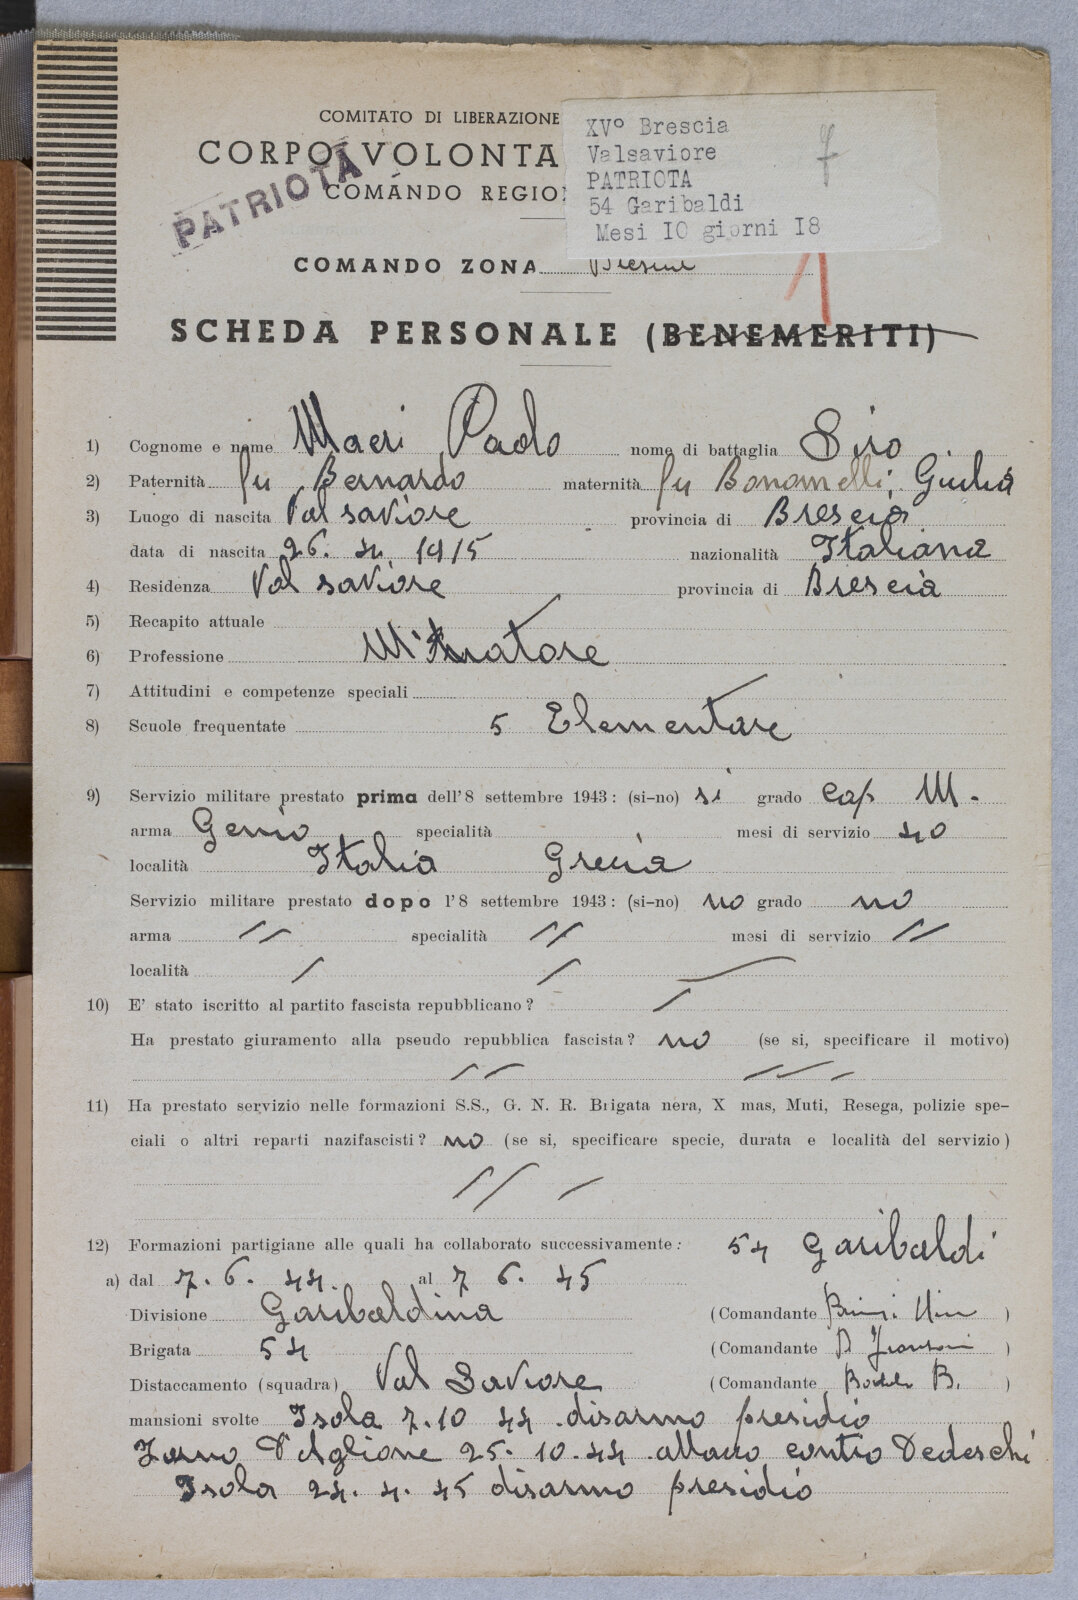 COMITATO DI LIBERAZIONE
CORPO VOLONTA
COMANDO REGIO
PATRIOTA
XV° Brescia
Valsaviore
PATRIOTA
54 Garibaldi
Mesi IO giorni I8
7
COMANDO ZONA Brescia
1
SCHEDA PERSONALE (BENEMERITI)
1) Cognome e nome Macri Paolo nome di battaglia Siro
2) Paternità fu Bernardo maternità fu Bonomelli Giulia
3) Luogo di nascita Val saviore provincia di Brescia
data di nascita 26. 4 1915 nazionalità Italiana
4) Residenza Val saviore provincia di Brescia
5) Recapito attuale
6) Professione Minatore
7) Attitudini e competenze speciali
8) Scuole frequentate 5 Elementare
9) Servizio militare prestato prima dell'8 settembre 1943: (si-no) si grado Cap M.
arma Genio specialità mesi di servizio 40
località Italia Grecia
Servizio militare prestato dopo l'8 settembre 1943: (si-no) no grado no
arma // specialità // mesi di servizio //
località / /
10) E' stato iscritto al partito fascista repubblicano? /
Ha prestato giuramento alla pseudo repubblica fascista? no (se si, specificare il motivo)
11) Ha prestato servizio nelle formazioni S.S., G. N. R. Brigata nera, X mas, Muti, Resega, polizie spe-
ciali o altri reparti nazifascisti? no (se si, specificare specie, durata e località del servizio)
12) Formazioni partigiane alle quali ha collaborato successivamente: 54 Garibaldi
a) dal 7. 6. 44. al 7 6. 45
Divisione Garibaldina (Comandante Nino)
Brigata 54 (Comandante)
Distaccamento (squadra) Val Saviore (Comandante B.)
mansioni svolte Isola 7.10 44 disarmo presidio
Forno D'Aglione 25. 10.44 attacco contro Tedeschi
Isola 24. 4. 45 disarmo presidio